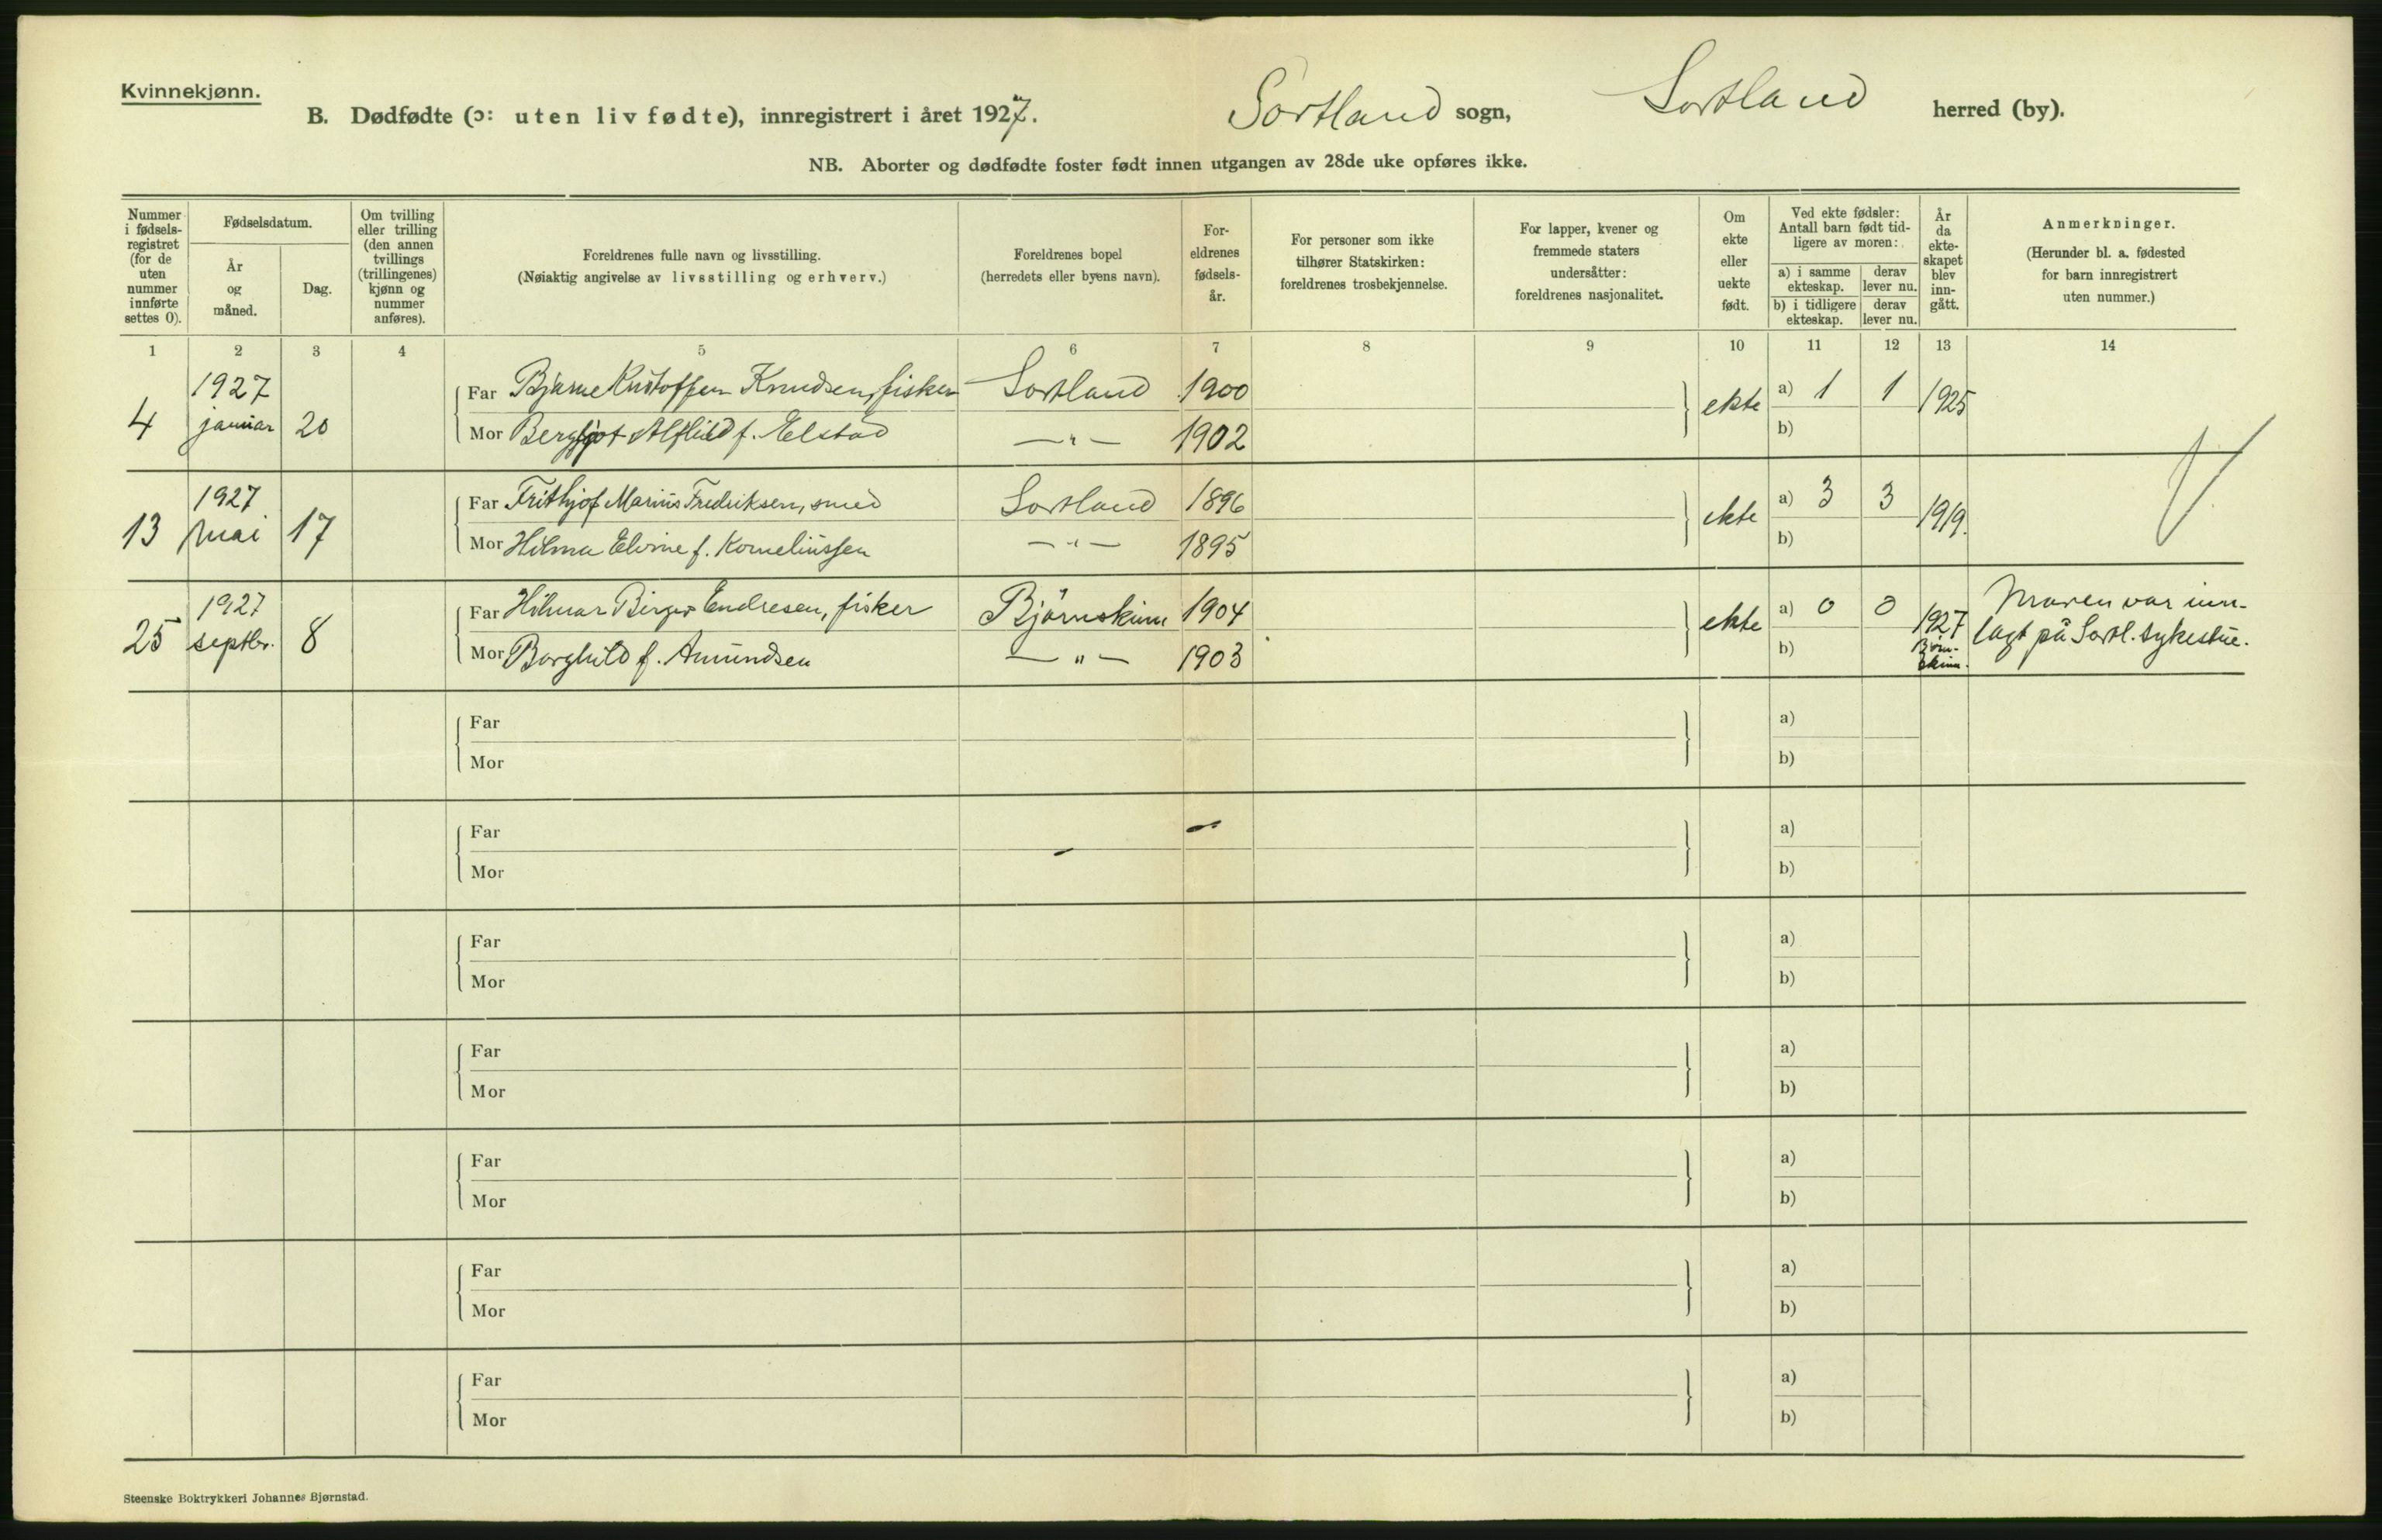 Kvinnekjønn.
B. Dødfødte (ɔ: uten liv fødte), innregistrert i året 1927. Sortland sogn, Sortland herred (by).
NB. Aborter og dødfødte foster født innen utgangen av 28de uke opføres ikke.
Nummer i fødselsregistret (for de uten nummer innførte settes 0).
Fødselsdatum.
År og måned.
Dag.
Om tvilling eller trilling (den annen tvillings (trillingenes) kjønn og nummer anføres).
Foreldrenes fulle navn og livsstilling.
(Nøiaktig angivelse av livsstilling og erhverv.)
Foreldrenes bopel
(herredets eller byens navn).
For-
eldrenes
fødsels-
år.
For personer som ikke
tilhører Statskirken:
foreldrenes trosbekjennelse.
For lapper, kvener og
fremmede staters
undersåtter:
foreldrenes nasjonalitet.
Om
ekte
eller
uekte
født.
Ved ekte fødsler:
Antall barn født tid-
ligere av moren:
a) i samme ekteskap.
derav lever nu.
b) i tidligere ekteskap.
derav lever nu.
År
da
ekte-
skapet
blev
inn-
gått.
Anmerkninger.
(Herunder bl. a. fødested
for barn innregistrert
uten nummer.)
1 2 3 4 5 6 7 8 9 10 11 12 13 14
4 1927 januar 20
Far Bjarne Kristoffen Knudsen, fisker Sortland 1900 ekte a) 1 1 1925
Mor Bergljot Alfhild f. Elstad —"— 1902 b)
13 1927 mai 17
Far Frithjof Marius Fredriksen, smed Sortland 1896 ekte a) 3 3 1919.
Mor Hilma Elvine f. Korneliussen —"— 1895 b)
25 1927 septbr. 8
Far Hilmar Birger Endresen, fisker Björnskinn 1904 ekte a) 0 0 1927 Björn-skinn.
Mor Borghild f. Amundsen —"— 1903 b)
Moren var inn-
lagt på Sortl. sykestue.
Far a)
Mor b)
Far a)
Mor b)
Far a)
Mor b)
Far a)
Mor b)
Far a)
Mor b)
Far a)
Mor b)
Far a)
Mor b)
Steenske Boktrykkeri Johannes Bjørnstad.